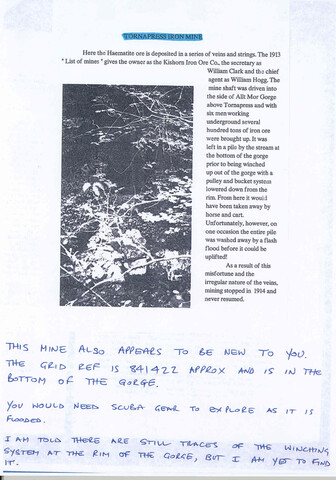 TORNAPRESS IRON MINE
Here the Haematite ore is deposited in a series of veins and strings. The 1913
" List of mines " gives the owner as the Kishorn Iron Ore Co., the secretary as
William Clark and the chief
agent as William Hogg. The
mine shaft was driven into
the side of Allt Mor Gorge
above Tornapress and with
six men working
underground several
hundred tons of iron ore
were brought up. It was
left in a pile by the stream at
the bottom of the gorge
prior to being winched
up out of the gorge with a
pulley and bucket system
lowered down from the
rim. From here it would
have been taken away by
horse and cart.
Unfortunately, however, on
one occasion the entire pile
was washed away by a flash
flood before it could be
uplifted!
As a result of this
misfortune and the
irregular nature of the veins,
mining stopped in 1914 and
never resumed.
THIS MINE ALSO APPEARS TO BE NEW TO YOU.
THE GRID REF IS 841422 APPROX AND IS IN THE
BOTTOM OF THE GORGE.
YOU WOULD NEED SCUBA GEAR TO EXPLORE AS IT IS
FLOODED.
I AM TOLD THERE ARE STILL TRACES OF THE WINCHING
SYSTEM AT THE RIM OF THE GORGE, BUT I AM YET TO FIND
IT.